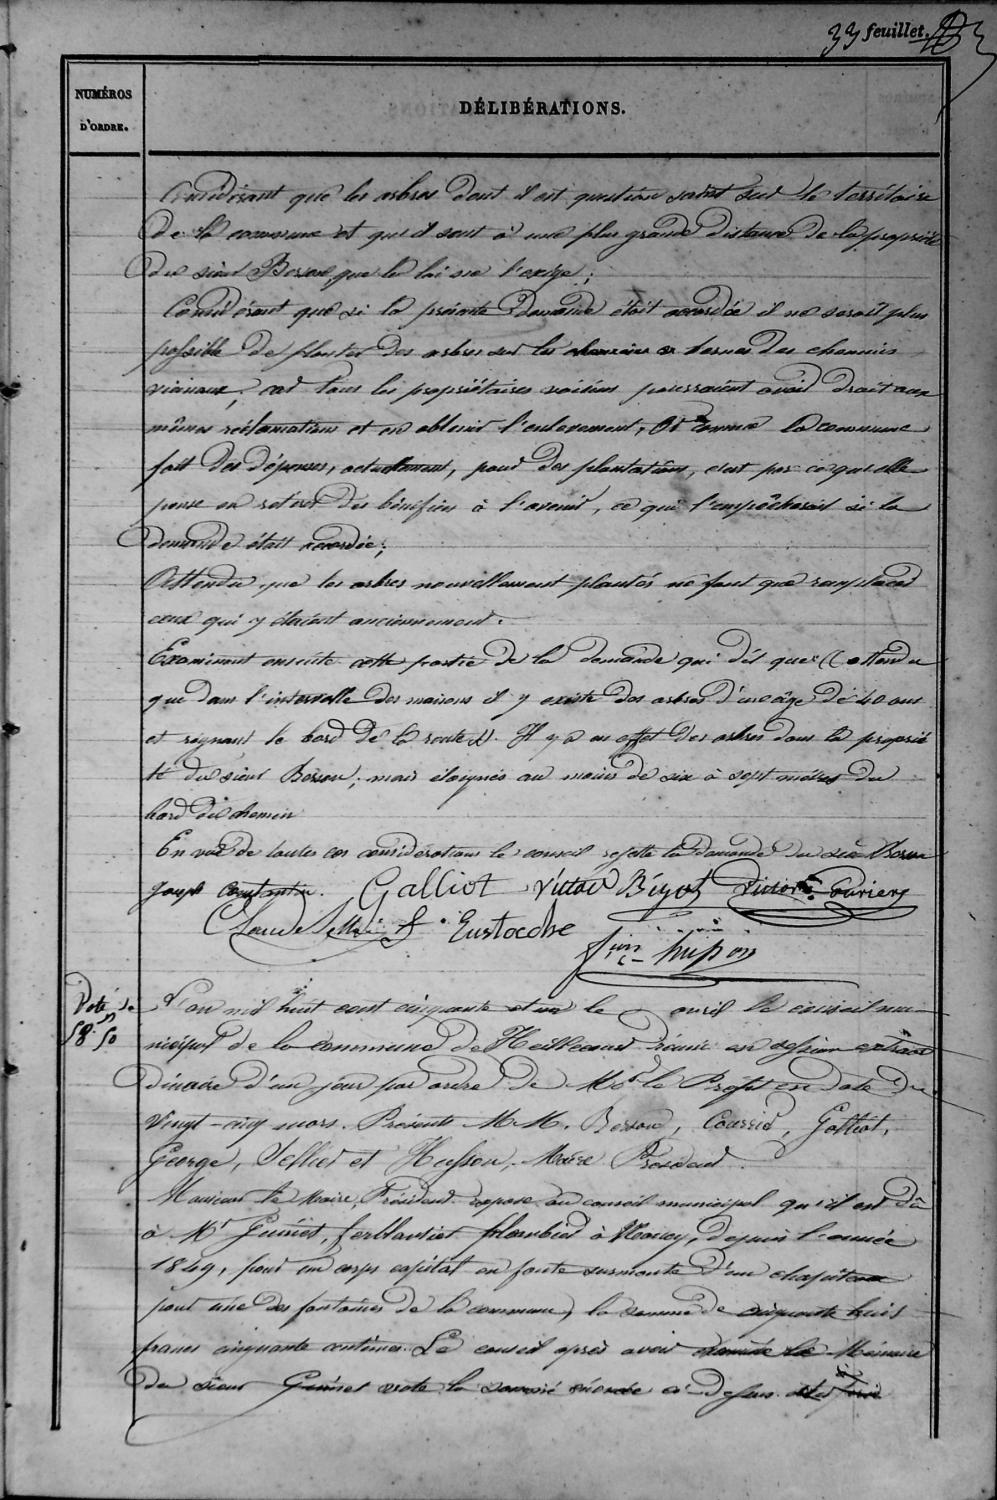 33 feuillet.
NUMÉROS
D'ORDRE.
DÉLIBÉRATIONS.
Considérant que les arbres dont il est question sont sur le territoire
de la commune et que il sont à une plus grande distance de la propriété
du sieur Besson que la loi ne l'exige;
Considérant que si la présente demande était accordée il ne serait plus
possible de planter des arbres sur les bernes des chemins
vicinaux, car tous les propriétaires voisins pourraient avoir droit aux
mêmes réclamations et en obtenir l'enlevement, Et comme la commune
fait des dépenses, actuellement, pour des plantations, c'est par ce qu'elle
pense en retirer des bénifices à l'avenir, ce qui l'empêcherait si la
demande était accordée;
Attendu que les arbres nouvellement plantés ne font que remplacer
ceux qui y étaient anciennement.
Examinant ensuite cette partie de la demande qui dit que (( attendu
que dans l'intervalle des maisons il y existe des arbres d'un âge de 40 ans
et régnant le bord de la route )). Il y a en effet des arbres dans la proprié
té du sieur Besson, mais éloignés au moins de six à sept mètres du
bord du chemin
En vue de toutes ces considérations le conseil rejette la demande du sieur Besson
Joseph Constantin. Galliot Victor Bigot Victor Couriers
Claude Sellier f. Eustache
Jn Husson
Voté de
58 f 50
L'an mil huit cent cinquante et un le avril le conseil mu-
nicipal de la commune de Heillecourt réuni en session extraor
dinaire d'un jour par ordre de Mr. le Préfet en date du
vingt-cinq mars. Présents M.M. Besson, Coursier, Galliot,
George, Sellier et Husson, Maire Président.
Monsieur le Maire, Président expose au conseil municipal qu'il est dû
à Mr Guinet, ferblantier plombier à Nancy, depuis l'année
1849, pour un corps capital en fonte surmonté d'un chapiteau
pour une des fontaines de la commune, la somme de cinquante huit
francs cinquante centimes. Le conseil après avoir examiné le Mémoire
du sieur Guinet vote la somme énoncée ci dessus